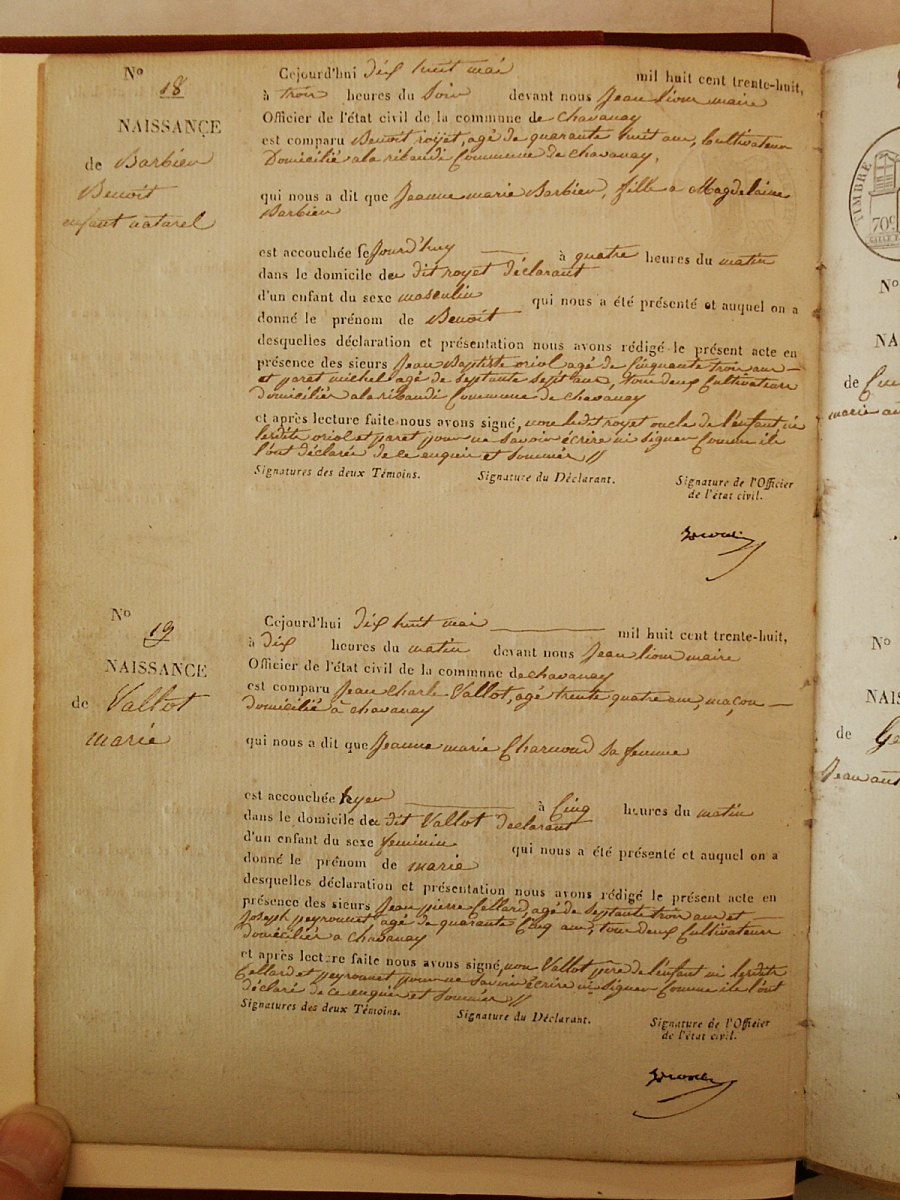 No
18
NAISSANCE
de Barbier
Benoit
enfant naturel
Cejourd'hui dix huit mai mil huit cent trente-huit,
à trois heures du Soir devant nous Jean Liour maire
Officier de l'état civil de la commune de Chavanay
est comparu Benoit royet, agé de quarante huit ans, Cultivateur
Domicilié a la ribaudi Commune de Chavanay,
qui nous a dit que Jeanne marie Barbier, fille a Magdelaine
Barbier
est accouchée ce Jourd'huy à quatre heures du matin
dans le domicile du dit royet déclarant
d'un enfant du sexe masculin qui nous a été présenté et auquel on a
donné le prénom de Benoit
desquelles déclaration et présentation nous avons rédigé le présent acte en
présence des sieurs Jean Baptiste oriol agé de Cinquante trois ans
et paret michel agé de septante sept ans, tous deux Cultivateurs
domiciliés a la ribaudi Commune de Chavanay
et après lecture faite nous avons signé, non ledit royet oncle de l'enfant ni
lesdits oriol et paret pour ne Savoir écrire ni signer Comme ils
l'ont déclaré de ce enquis et Sommés //
Signatures des deux Témoins. Signature du Déclarant. Signature de l'Officier
de l'état civil.
No
19
NAISSANCE
de Vallot
marie
Cejourd'hui dix huit mai mil huit cent trente-huit,
à dix heures du matin devant nous Jean Liour maire
Officier de l'état civil de la commune de chavanay
est comparu Jean Charle Vallot, agé trente quatre ans, maçon
domicilié à chavanay
qui nous a dit que Jeanne marie Charnoud sa femme
est accouchée hyer à Cinq heures du matin
dans le domicile du dit Vallot déclarant
d'un enfant du sexe feminin qui nous a été présenté et auquel on a
donné le prénom de marie
desquelles déclaration et présentation nous avons rédigé le présent acte en
présence des sieurs Jean pierre Cellard, agé de septante trois ans et
Joseph peyrouset agé de quarante Cinq ans, tous deux Cultivateurs
domiciliés a Chavanay
et après lecture faite nous avons signé, non Vallot père de l'enfant ni lesdits
Cellard et peyrouset pour ne Savoir écrire ni Signer Comme ils l'ont
déclaré de ce enquis et Sommés //
Signatures des deux Témoins. Signature du Déclarant. Signature de l'Officier
de l'état civil.
TIMBRE
709
No
NA
de
marie
No
NAIS
de Ge
Jean